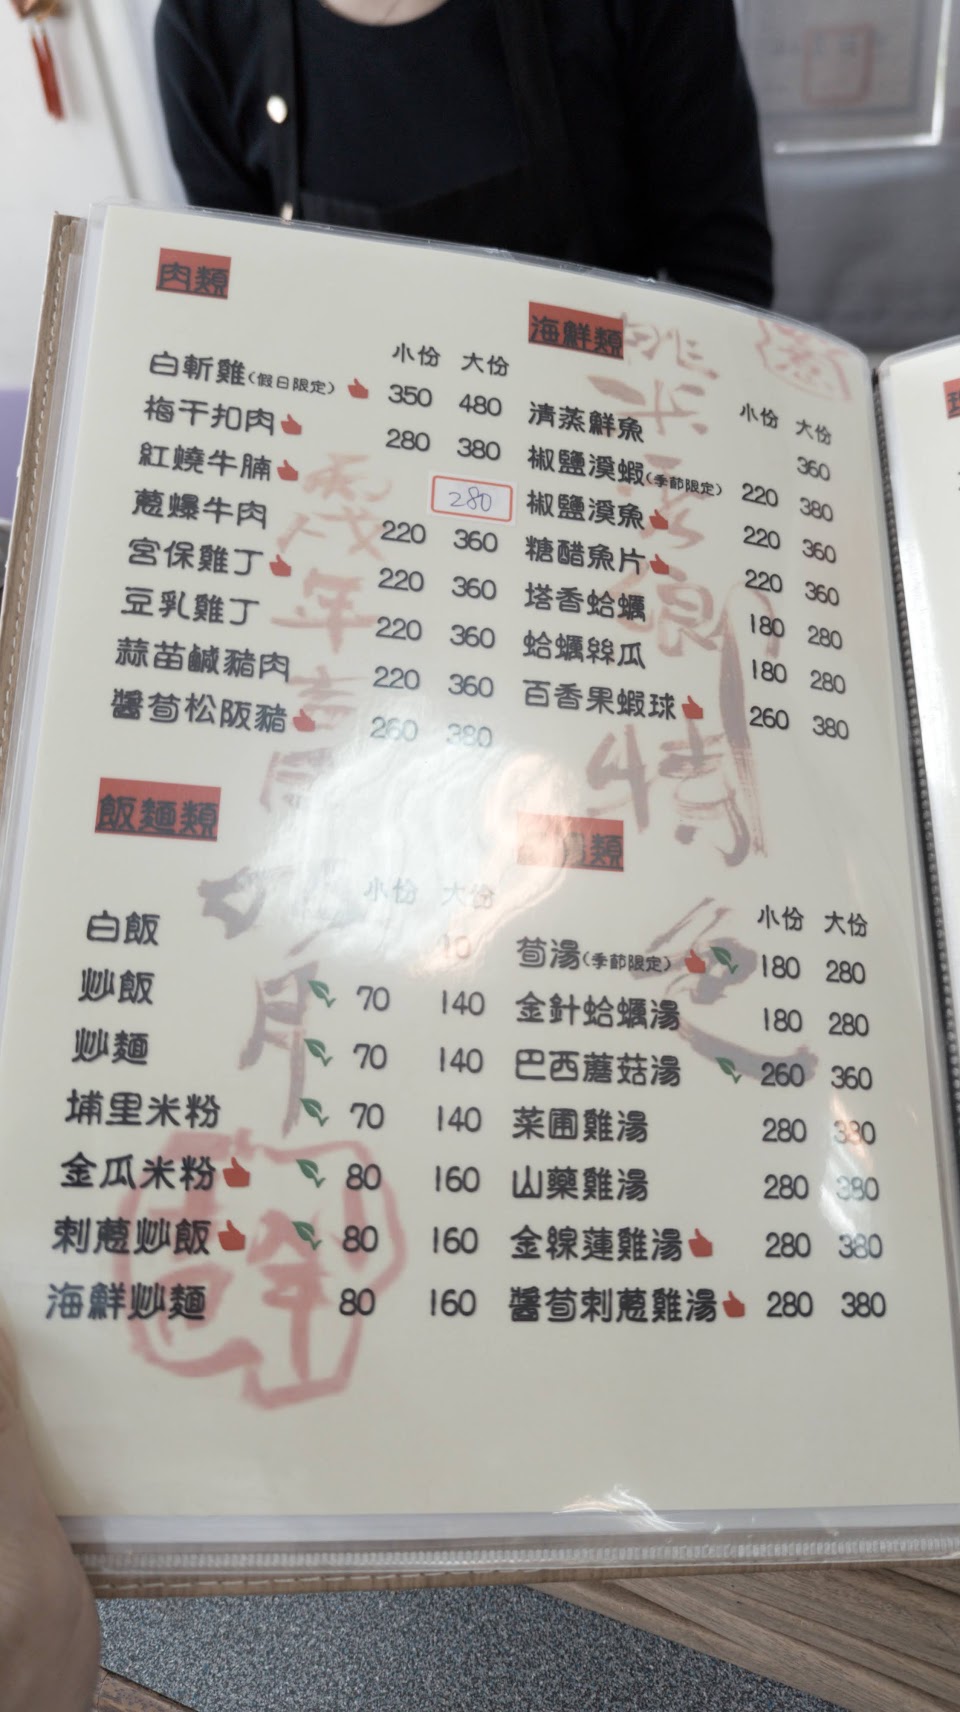 肉類
小份 大份
白斬雞(假日限定) 350 480
梅干扣肉 280 380
紅燒牛腩 280
蔥爆牛肉 220 360
宮保雞丁 220 360
豆乳雞丁 220 360
蒜苗鹹豬肉 220 360
醬筍松阪豬 260 380
海鮮類
小份 大份
清蒸鮮魚 360
椒鹽溪蝦(季節限定) 220 380
椒鹽溪魚 220 360
糖醋魚片 220 360
塔香蛤蠣 180 280
蛤蠣絲瓜 180 280
百香果蝦球 260 380
飯麵類
小份 大份
白飯 10
炒飯 70 140
炒麵 70 140
埔里米粉 70 140
金瓜米粉 80 160
刺蔥炒飯 80 160
海鮮炒麵 80 160
湯類
小份 大份
筍湯(季節限定) 180 280
金針蛤蠣湯 180 280
巴西蘑菇湯 260 360
菜圃雞湯 280 380
山藥雞湯 280 380
金線蓮雞湯 280 380
醬筍刺蔥雞湯 280 380